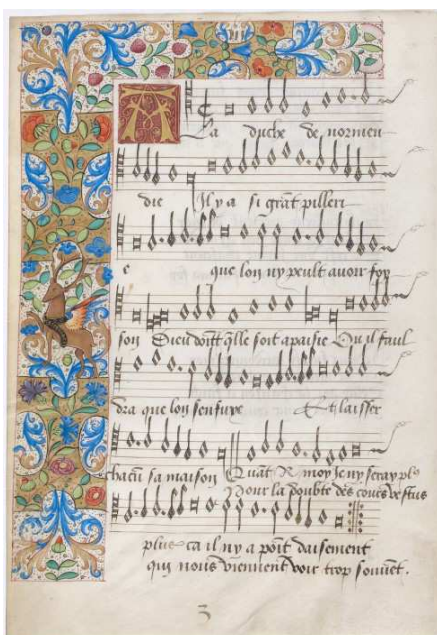 A la duche de normen
die Il y a si grāt pilleri
e que lon ny peult avoir foy
son Dieu doītt q̄lle soit apaisie Qu il faul
dra que lon senfuye Et laisser
chacū sa maison Quāt R moy Je ny seray pl9
Pour la doubte des coues vestus
plus ca il ny a poīt daisement
qui nous viennent voir trop souuēt.
3